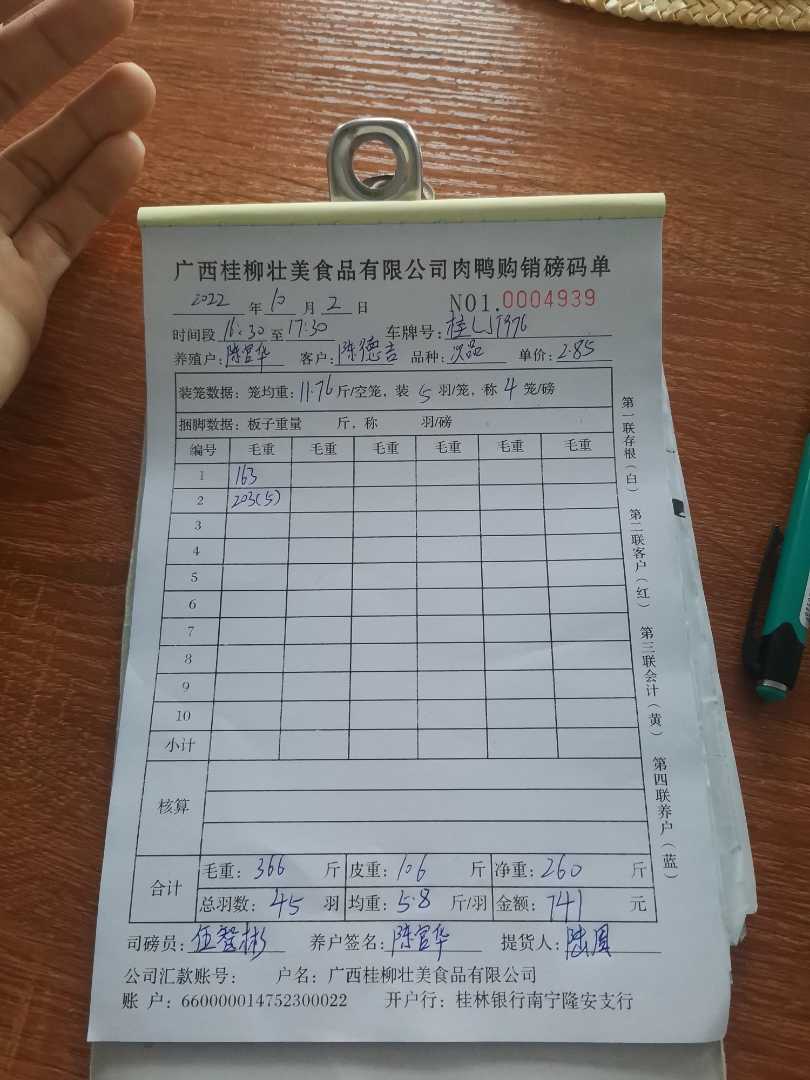 广西桂柳壮美食品有限公司肉鸭购销磅码单
2022 年 10 月 2 日 NO1.0004939
时间段 16:30 至 17:30 车牌号: 桂
养殖户: 陈官华 客户: 陈德吉 品种: 次品 单价: 2.85
装笼数据: 笼均重: 11.76 斤/空笼, 装 5 羽/笼, 称 4 笼/磅
捆脚数据: 板子重量 斤, 称 羽/磅
编号 毛重 毛重 毛重 毛重 毛重 毛重
1 163
2 203(5)
3
4
5
6
7
8
9
10
小计
核算
合计 毛重: 366 斤 皮重: 106 斤 净重: 260 斤
总羽数: 45 羽 均重: 5.8 斤/羽 金额: 741 元
司磅员: 伍 彬 养户签名: 陈官华 提货人: 陆
公司汇款账号: 户名: 广西桂柳壮美食品有限公司
账 户: 660000014752300022 开户行: 桂林银行南宁隆安支行
第一联存根(白) 第二联客户(红) 第三联会计(黄) 第四联养户(蓝)